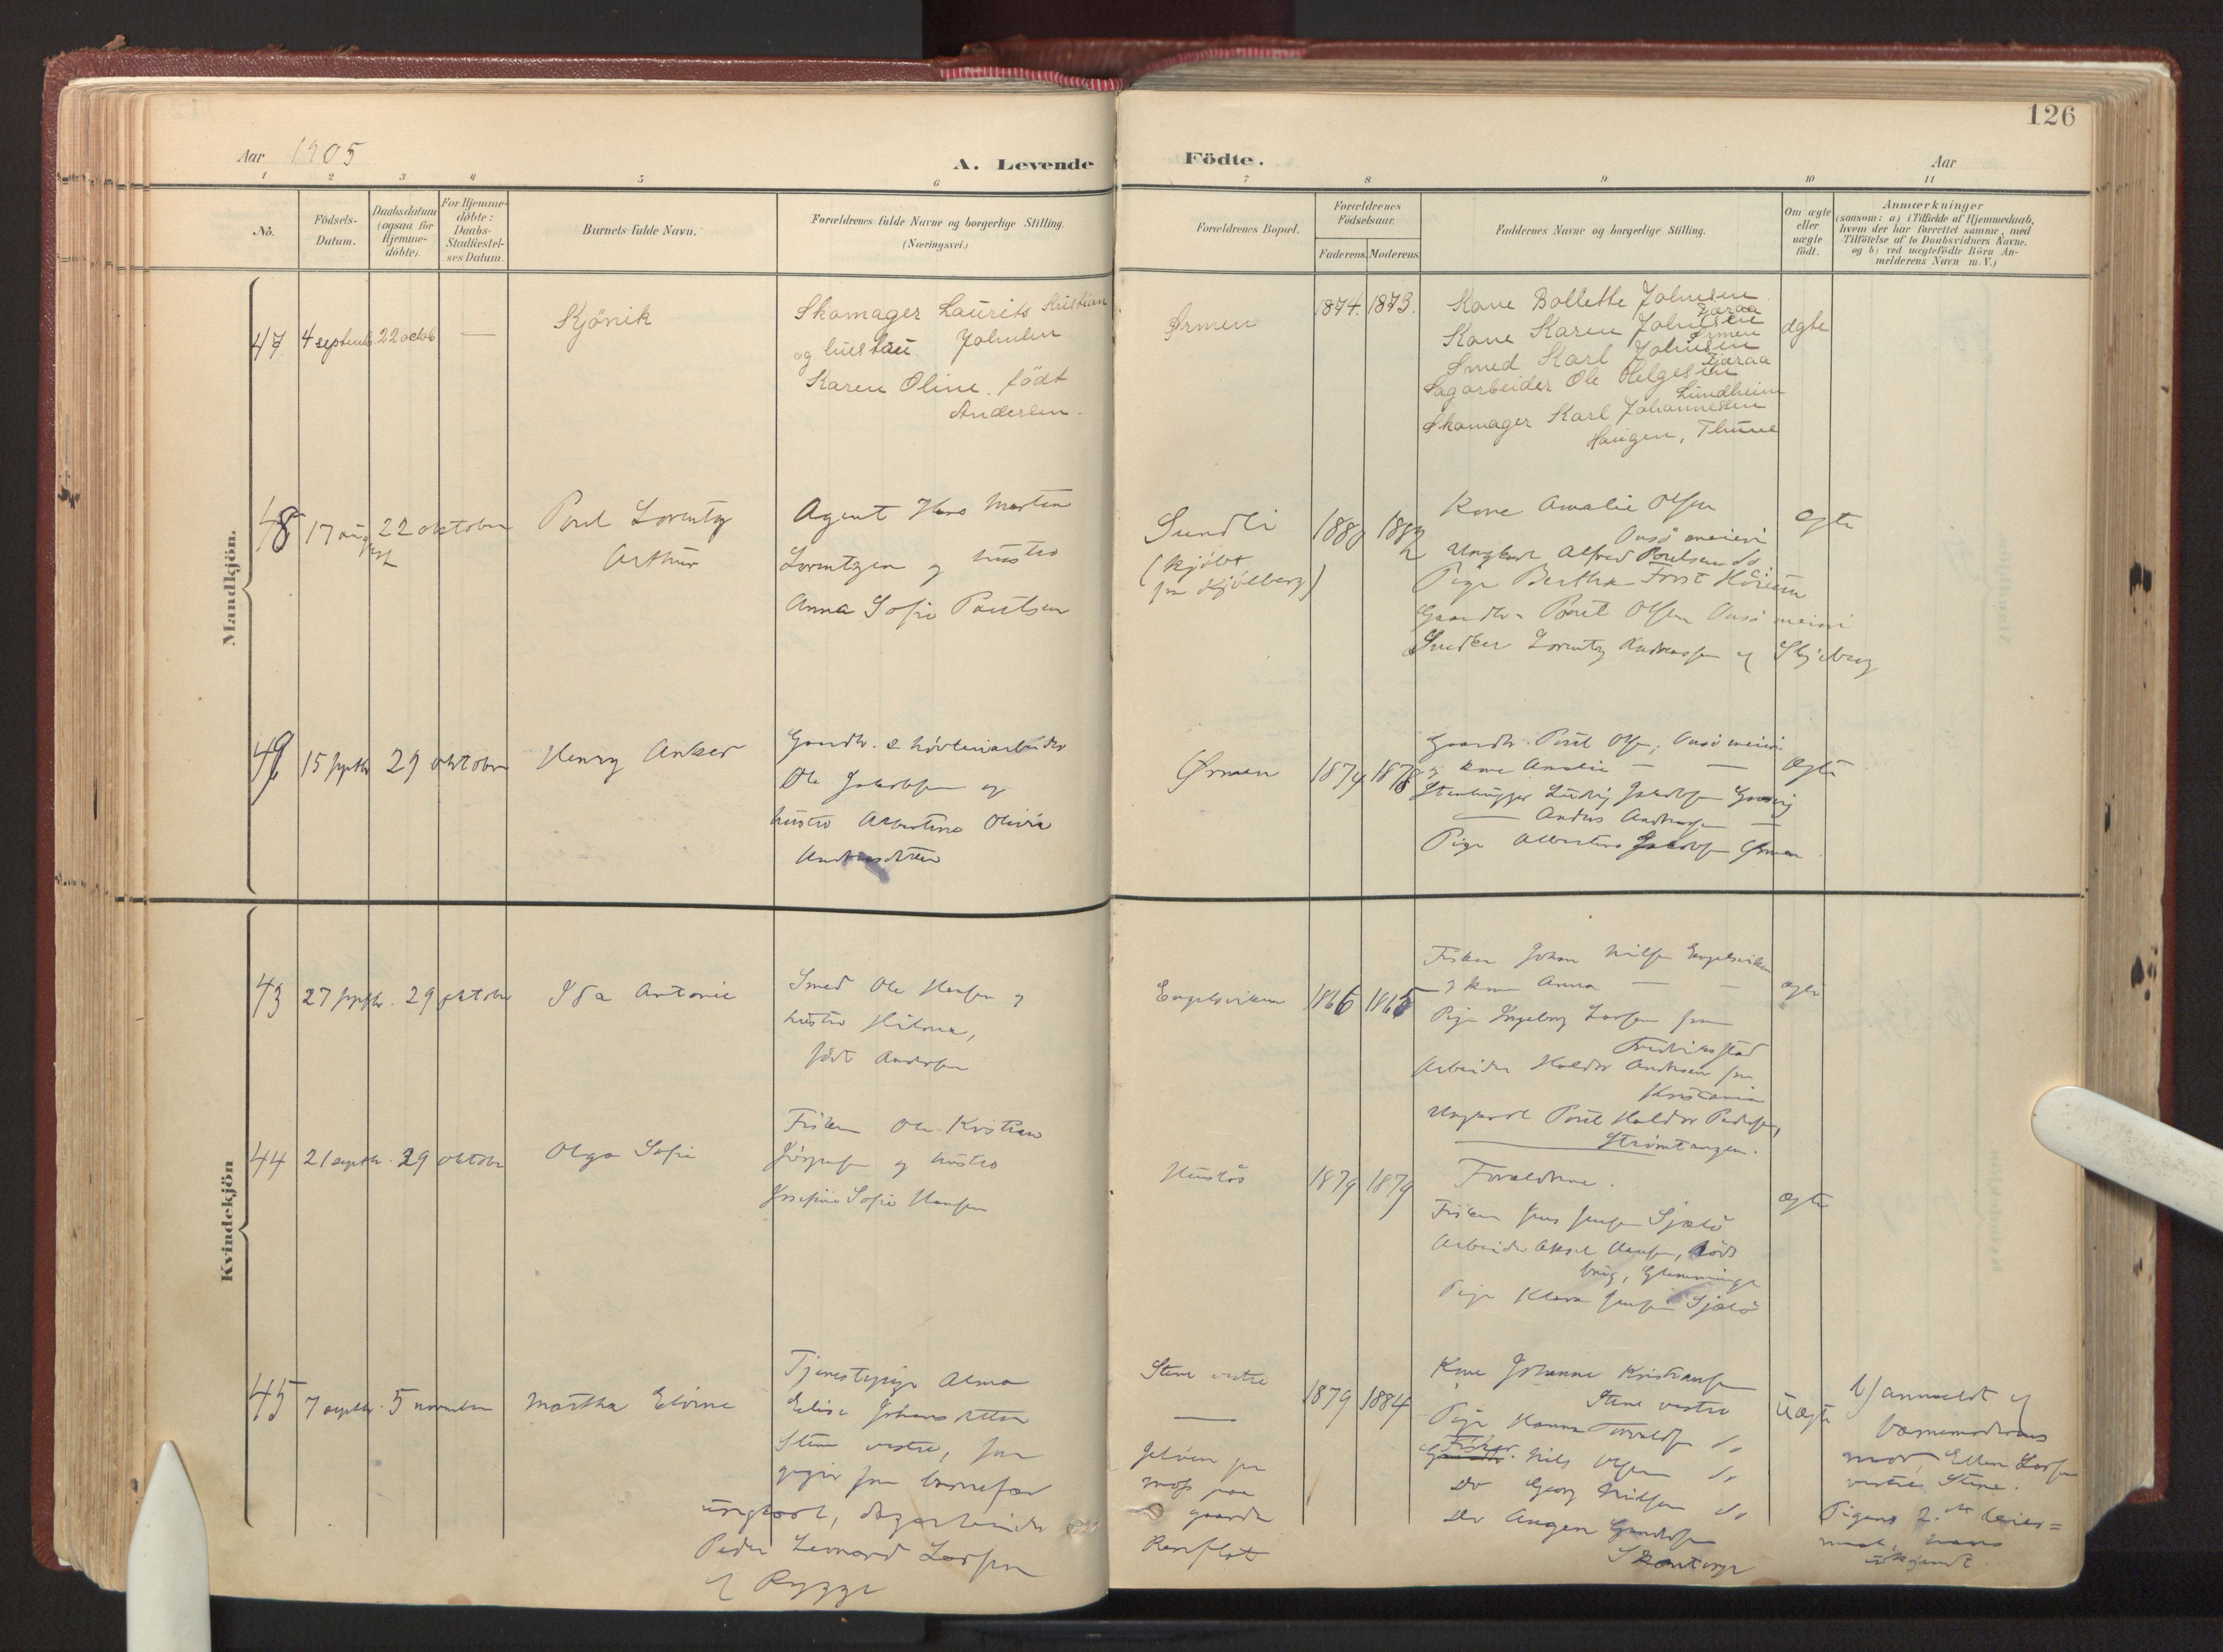 126
Aar 1905
A. Levende Födte.
Aar
1 2 3 4 5 6 7 8 9 10 11
No.
Födsels-
Datum.
Daabsdatum
(ogsaa for
Hjemme-
döbte).
For Hjemme-
döbte:
Daabs-
Stadfæstel-
ses Datum.
Barnets fulde Navn.
Forældrenes fulde Navne og borgerlige Stilling.
(Næringsvei.)
Forældrenes Bopæl.
Forældrenes
Födselsaar.
Faderens. Moderens.
Faddernes Navne og borgerlige Stilling.
Om ægte
eller
uægte
födt.
Anmærkninger
(saasom: a) i Tilfælde af Hjemmedaab,
hvem der har forrettet samme, med
Tilföielse af to Daabsvidners Navne,
og b) ved uægtefödte Börn An-
melderens Navn m. V.)
Mandkjön.
47 4 septemb. 22 octob —
Kjönik
Skomager Laurits Kristian
og hustru Johnsen
Karen Oline. födt
Andersen.
Ørmen
1874. 1873.
Kone Bollette Johnsen
Kone Karen Johnsen
Ørmen
Smed Karl Johnsen
Sagarbeider Ole Helgesen
Lundheim
Skomager Karl Johannessen
Haugen, Thune
ægte
48 17 august 22 oktober
Poul Lorentz
Arthur
Agent Hans Morten
Lorentzen og hustru
Anna Sofie Poulsen
Sundli
(kjöbt
fra Kjölberg)
1880 1882
Kone Amalie Olsen
Onsö meieri
Ungkarl Alfred Poulsen do
Pige Bertha
Gaardbr. Poul Olsen Onsö meieri
Lorentz Andreassen af Skjeberg
ægte
49 15 septbr 29 oktober
Henry Anker
Gaardbr. &
Ole Jakobsen og
hustru Albertine Olivia
Andreasdatter
Ørmen
1874 1878
Gaardbr. Poul Olsen, Onsö meieri
og kone Amalie — —
Stenhugger Ludvig Jakobsen
— Anders Andreassen —
Pige Albertine Jakobsen Ørmen
ægte
Kvindekjön
43 27 septbr. 29 oktober
Ida Antonie
Smed Ole Hansen og
hustru Hilma,
födt Andersen
Engelsviken
1866 1865
Fisker Johan Nilsen Engelsviken
og kone Anna — —
Pige Ingeborg Larsen fra
Fredriksstad
Arbeider Haldor Andersen fra
Kristiania
Ungkarl Poul Haldor Pedersen,
Strömtangen.
ægte
44 21 septbr. 29 oktober
Olga Sofie
Fisker Ole Kristian
og hustru
Josefine Sofie Hansen
1879 1879
Forældrene.
Fisker Jens Jensen Sjælö
Arbeider Aksel Hansen,
Glemminge
Pige Klara Jensen Sjælö
ægte
45 7 septbr. 5 november
Martha Elvine
Tjenestepige Alma
Elise Johansdatter
Stene vestre, som
opgiver som barnefar
ungkarl, dagarbeider
Peder Leonard Larsen
af Rygge
Stene vestre
—
Jelöen pr
Moss paa
gaarden
1879 1884
Kone Johanne Kristiansen
Stene vestre
Pige Hanna do
Fisker Nils Olsen do
Do Georg Nilsen do
Do
uægte
b) anmeldt af
barnemoderens
mor, Ellen Larsen
vestre Stene.
Pigens 2. det leier=
maal, hans